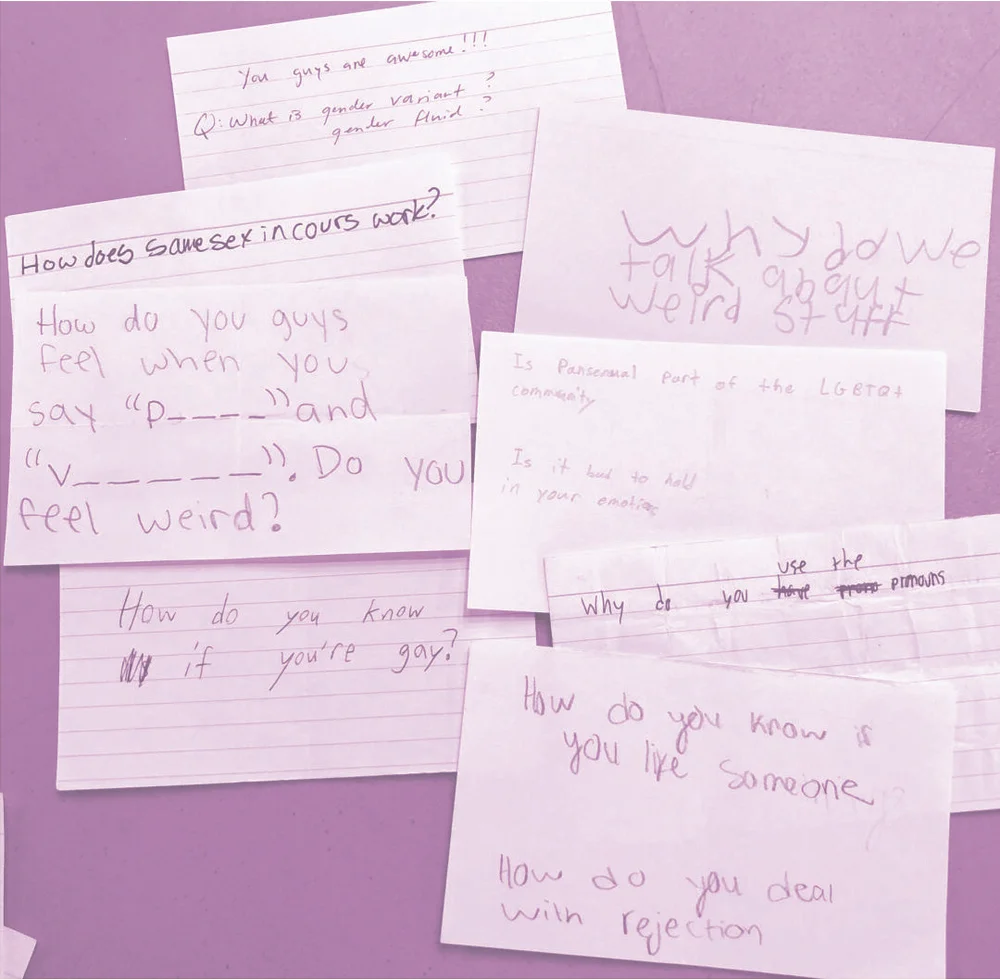 You guys are awesome!!!
Q: What is gender variant?
gender fluid?
How does same sex in cours work?
How do you guys
feel when you
say "P----" and
"V_ _ _ _ _". Do you
feel weird?
Why do we
talk abaut
weird stuff
Is Pansexual part of the LGBTQ+
community
Is it bad to hold
in your emotions
use the
Why do you have pronouns
How do you know
if you're gay?
How do you know is
you like someone
How do you deal
with rejection